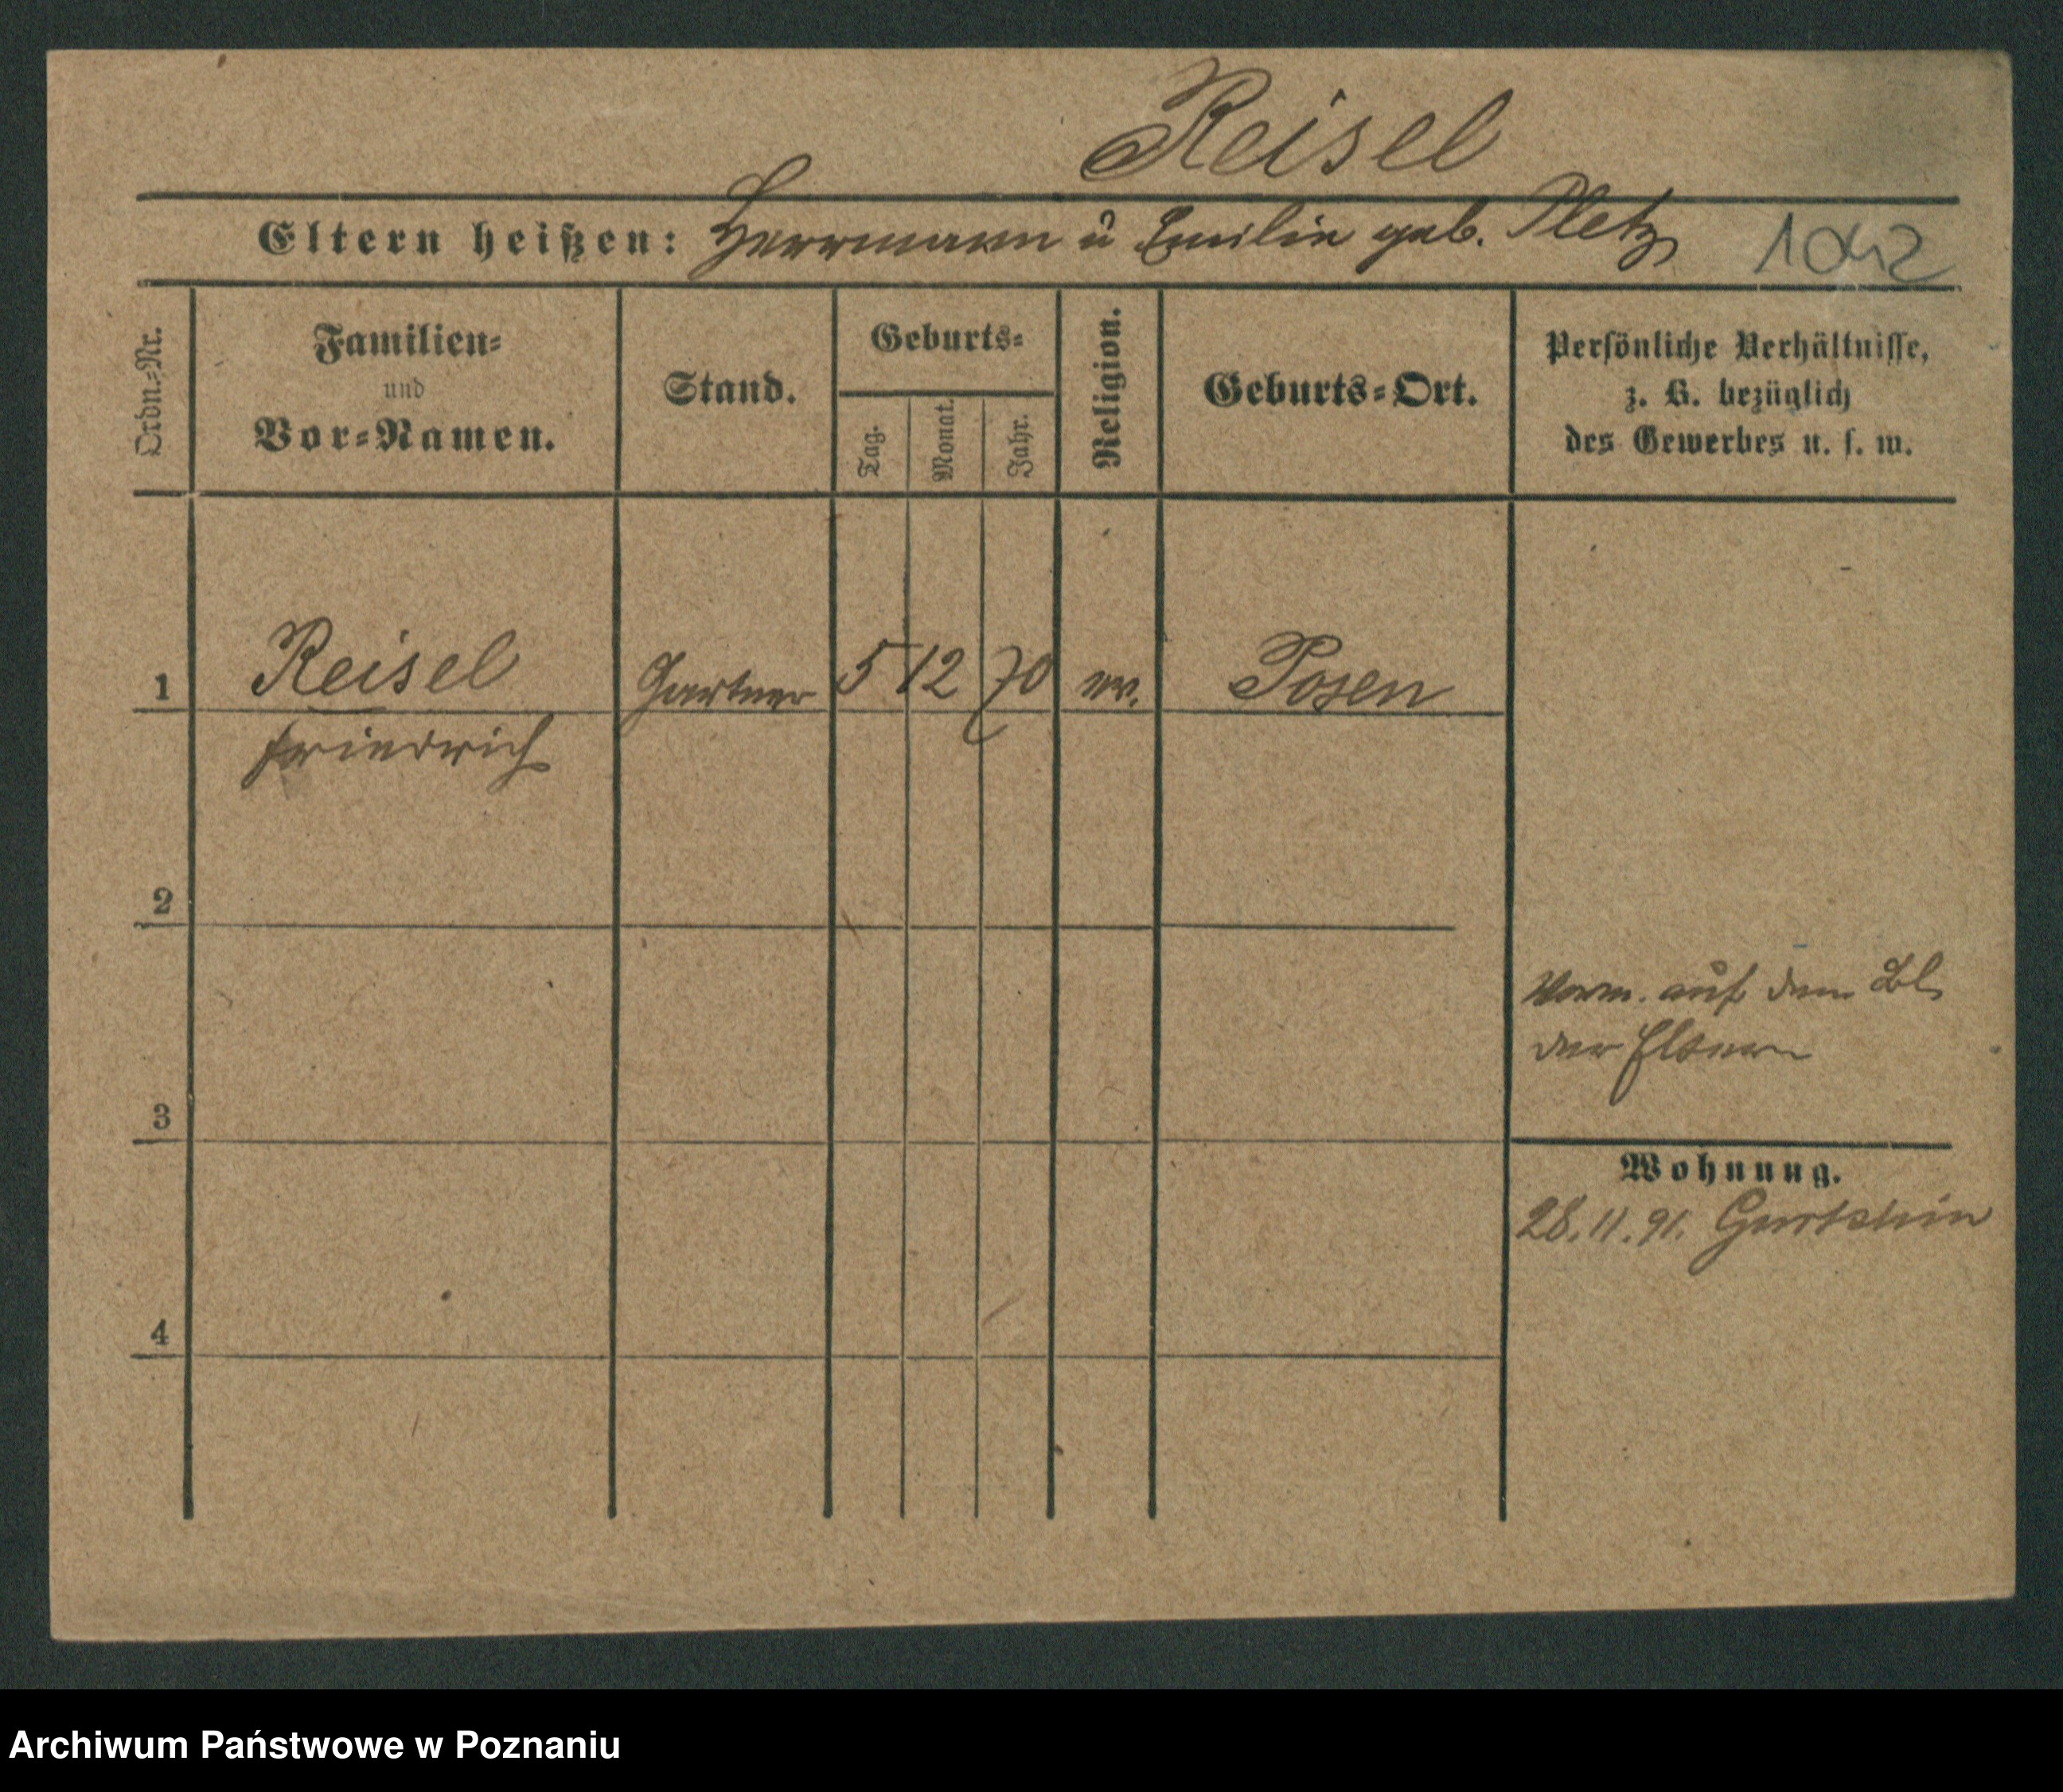 Reisel
Eltern heißen: Herrmann u Emilie geb. Pletz 1042
Ordn.-Nr.
Familien-
und
Vor-Namen.
Stand.
Geburts-
Tag.
Monat.
Jahr.
Religion.
Geburts-Ort.
Persönliche Verhältnisse,
z. B. bezüglich
des Gewerbes u. s. w.
1 Reisel Gärtner 5 12 70 ev. Posen
Friedrich
2
Verm. auf dem Bl.
der Eltern
3
Wohnung.
28.11.91.
4
Archiwum Państwowe w Poznaniu